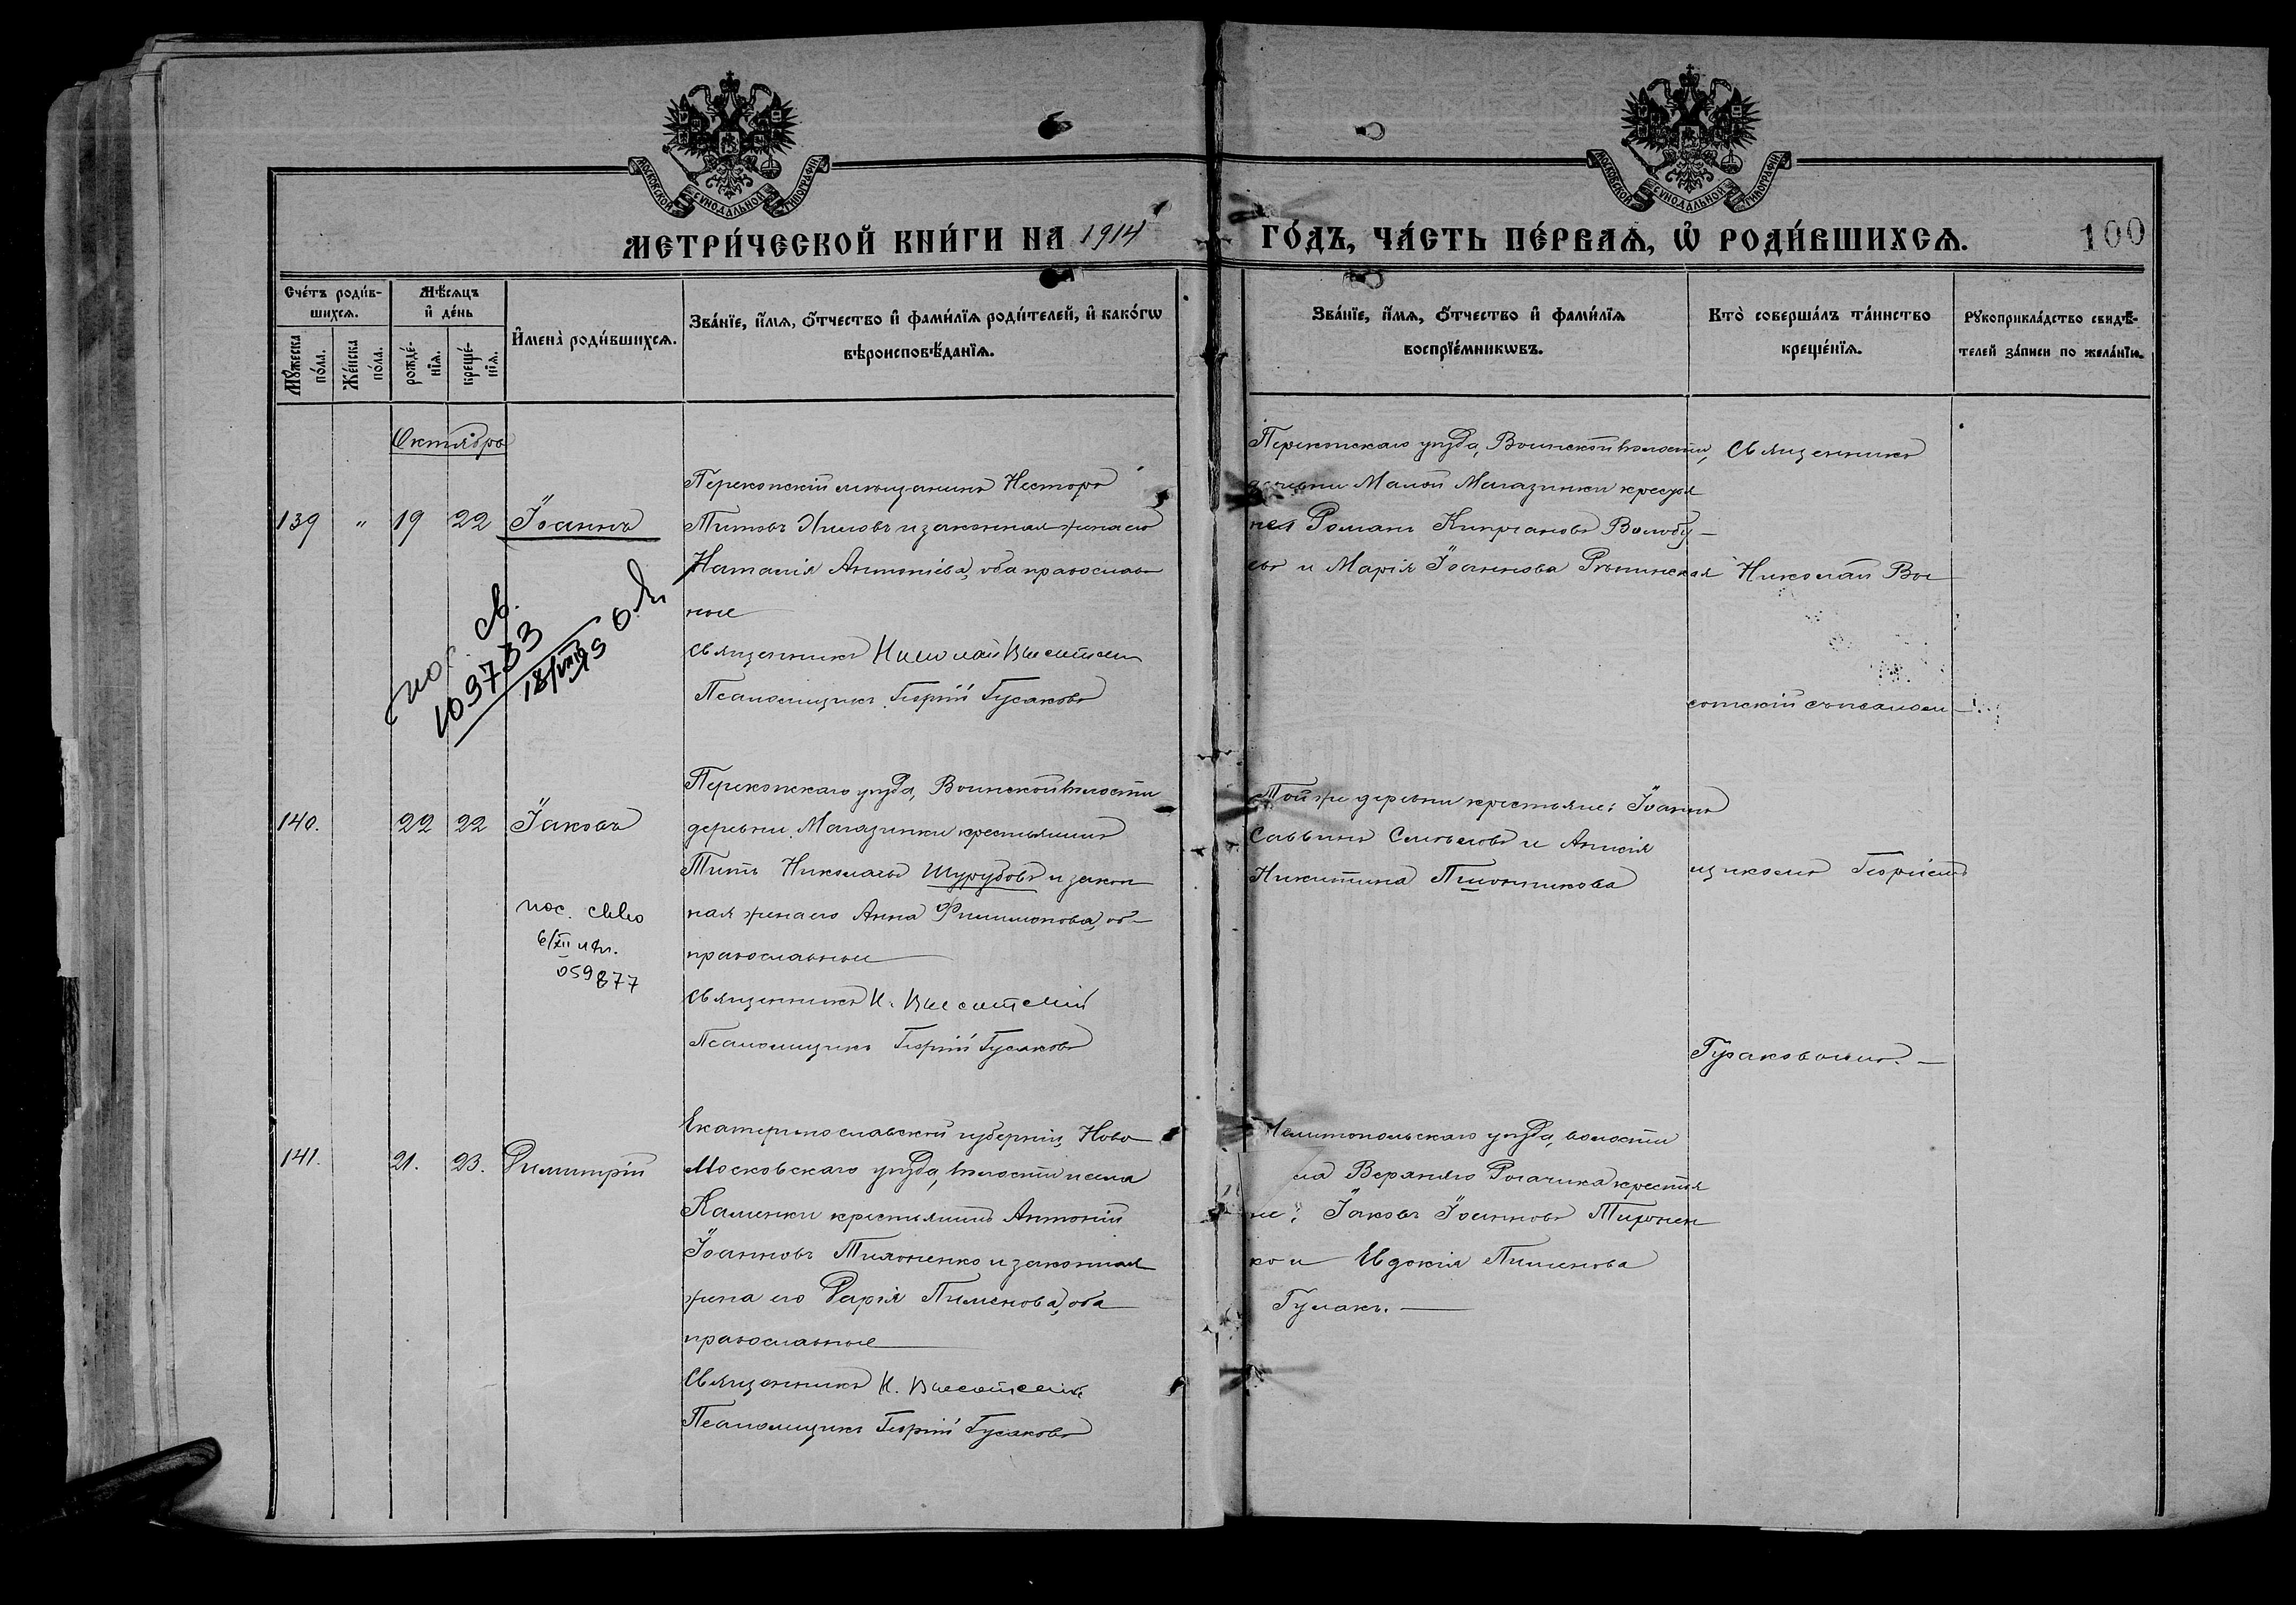 МОСКОВСКОЙ СУНОДАЛЬНОЙ ТИПОГРАФІИ
МОСКОВСКОЙ СУНОДАЛЬНОЙ ТИПОГРАФІИ
МЕТРИ́ЧЕСКОЙ КНИ́ГИ НА 1914
ГО́ДЪ, ЧА́СТЬ ПЕ́РВАѦ, Ѡ РОДИ́ВШИХСѦ.
100
Сче́тъ роди́в-
шихсѧ.
Мꙋ́жеска по́ла.
Же́нска по́ла.
Мѣ́сѧцъ
и́ де́нь
рожде́-
нїѧ.
креще́-
нїѧ.
И́мена̀ роди́вшихсѧ.
Зва́нїе, и́мѧ, ѻ́тчество и́ фами́лїѧ роди́телей, и́ како́гѡ
вѣроисповѣ́данїѧ.
Зва́нїе, и́мѧ, ѻ́тчество и́ фами́лїѧ
воспрїе́мникѡвъ.
Кто̀ соверша́лъ та́инство
креще́нїѧ.
Рꙋкоприкла́дство свидѣ́-
телей за́писи по жела́нїю.
Октябрь
139 " 19 22 Іоаннъ
Перекопскій мѣщанинъ Несторъ
Титовъ и законная жена его
Наталія Антоніева, оба православ
ные
Священникъ Николай Высотскій
Псаломщикъ Георгій Гусаковъ
пос. св.
109733
Перекопскаго уѣзда, Воинской волости,
деревни Малой Магазинки крестья
не: Романъ Кипріановъ Волобу-
евъ и Марія Іоаннова Рѣпинская
Священникъ
Николай Вы
сотскій съ псалом-
140. 22 22 Іаковъ
Перекопскаго уѣзда, Воинской волости
деревни Магазинки крестьянинъ
Титъ Николаевъ Шурубовъ и закон
ная жена его Анна Филимонова, оба
православные
Священникъ Н. Высотскій
Псаломщикъ Георгій Гусаковъ
пос. св-во
6/XII
059877
Той же деревни крестьяне: Іоаннъ
Саввинъ и Анисія
Никитина Плотникова
щикомъ Георгіемъ
Гусаковымъ. —
141. 21. 23. Димитрій
Екатеринославской губерніи, Ново
Московскаго уѣзда, волости и села
Каменки крестьянинъ Антоній
Іоанновъ и законная
жена его Дарія Пименова, оба
православные
Священникъ Н. Высотскій
Псаломщикъ Георгій Гусаковъ
Мелитопольскаго уѣзда, волости
села Верхняго Рогачика крестья
не: Іаковъ Іоанновъ Миронен
ко и Евдокія Пименова
Гумакъ. —